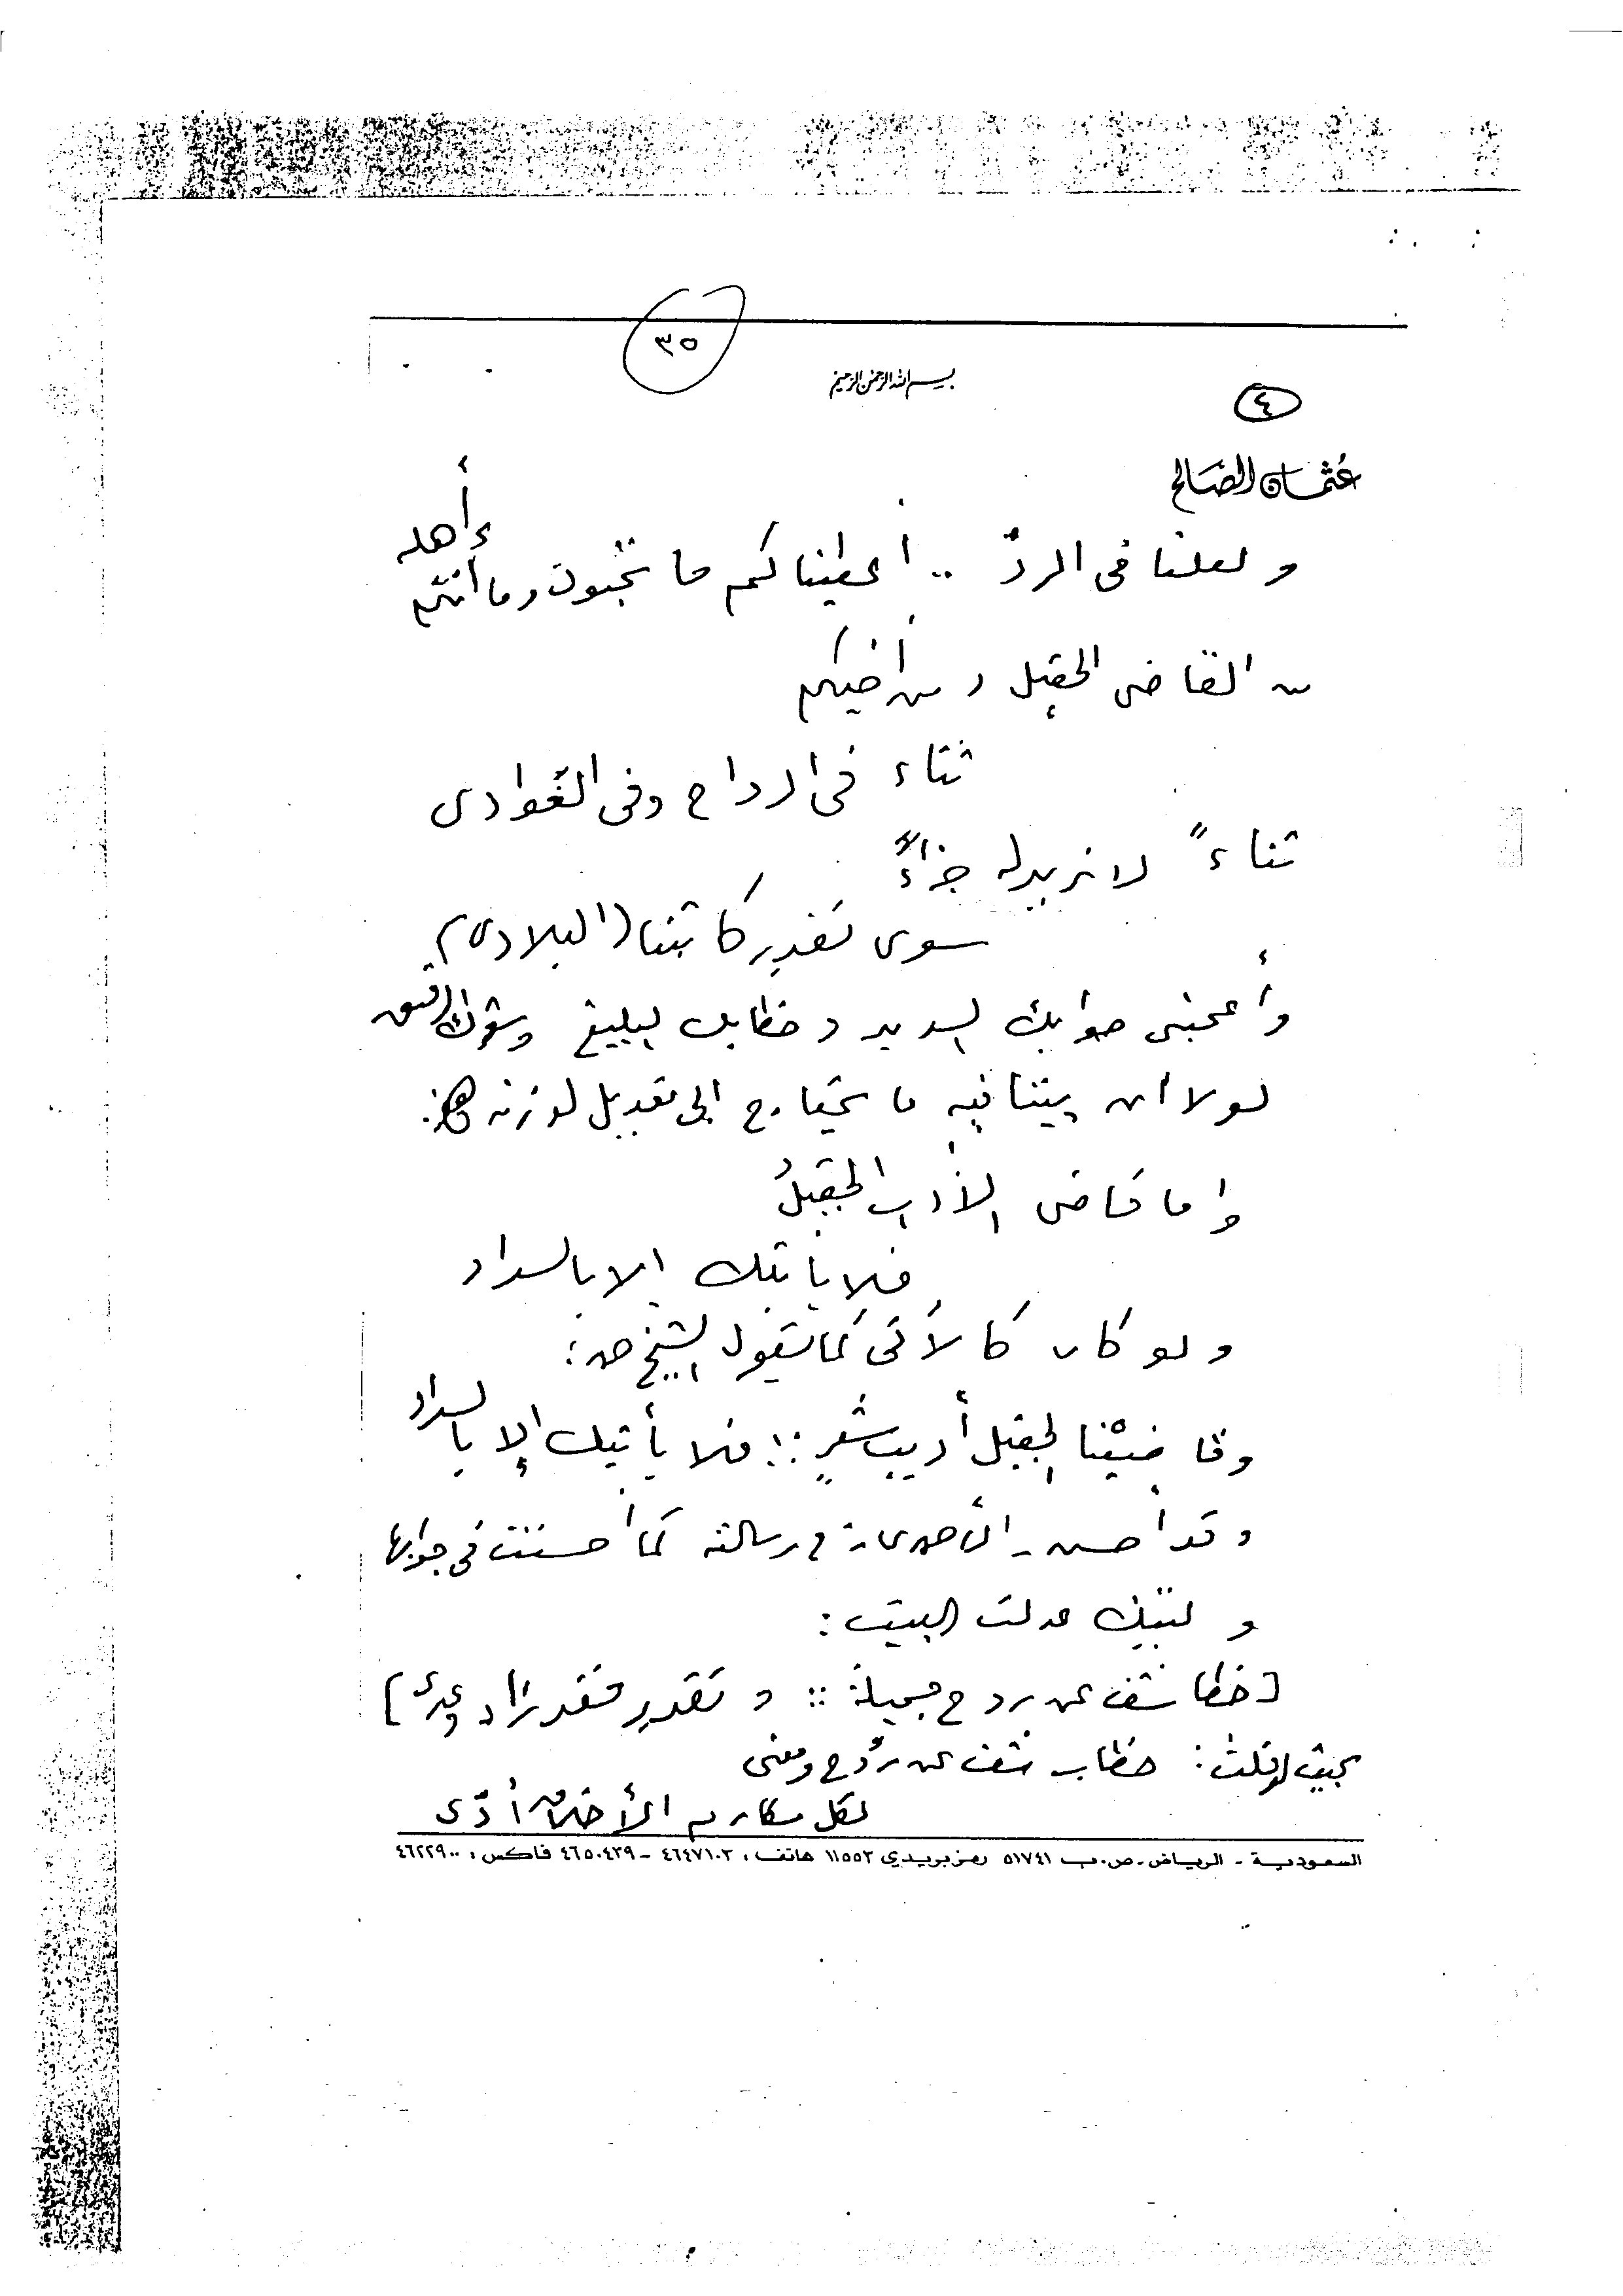 ٣٥
بسم الله الرحمن الرحيم
٤
عثمان الصالح
ولعلنا فى الردّ .. أعطيناكم ما تحبون وما أنتم أهله
من القاضى الحقيل ومن أخيكم
ثناء فى الرواح وفى الغوادى
ثناءً لا نريد له جزاءً
سوى تقدير كاتبنا (البلادى)
وأعجبنى جوابك السديد وخطابك البليغ وشعرك
لولا ان بيتا فيه ما يحتاج الى تعديل لوزنه هو:
واما قاضى الأدب الحقيلُ
فلا يأتيك الا بالسداد
ولو كان كالآتى كما يقول الشيخ حمد:
وقاضيْنا الحقيل أديب شعرٍ :: فلا يأتيك إلا بالسداد
وقد أحسن - الأحمدى - فى رسالته كما أحسنت فى جوابها
وليتك عدلت البيت:
[خطا شف عن روح جميلة :: وتقدير فقد زاد]
بحيث لو قلت: خطاب شف عن روح ومعنى
لكل مكارم الأخلاق أدّى
السعودية - الرياض - ص.ب ٥١٧٤١ رمز بريدي ١١٥٥٣ هاتف: ٤٦٤٧١٠٣ - ٤٦٥٠٤٣٩ فاكس: ٤٦٢٢٩٠٠